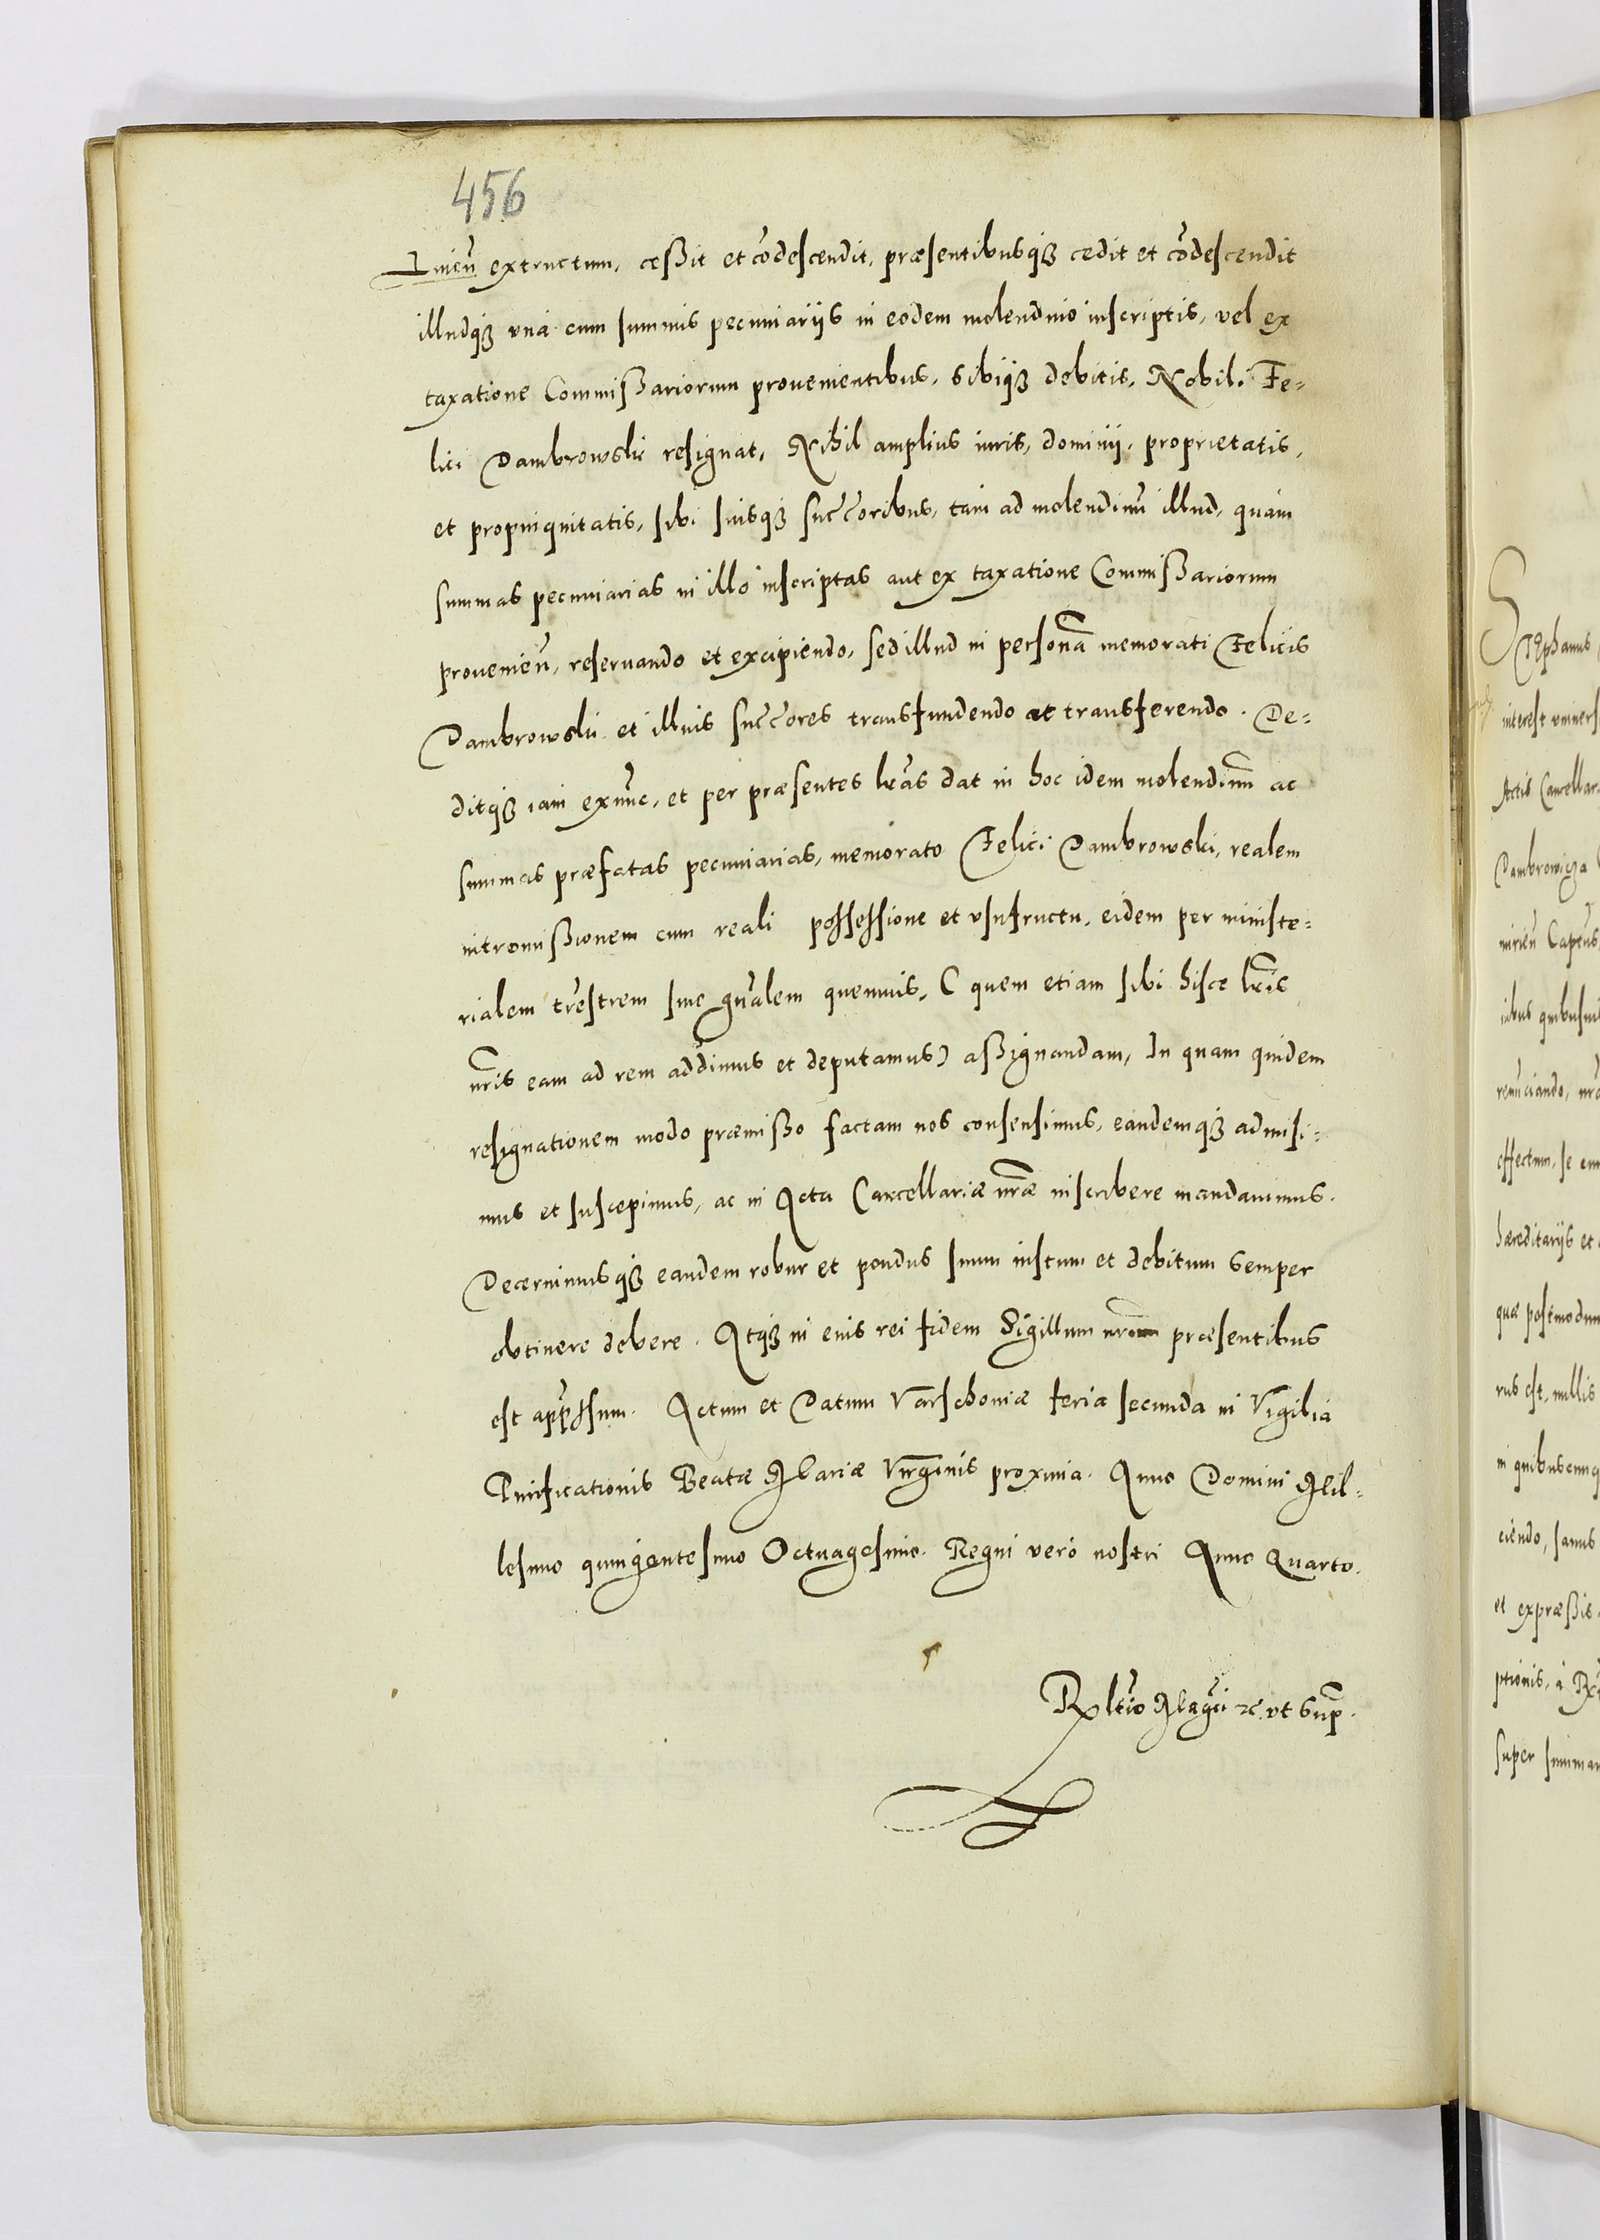 456
Iuień extructum, ceßit et cōdescendit, præsentibusq3 cedit et cōdescendit
illudq3 vná cum summis pecuniarijs in eodem molendino inscriptis, vel ex
taxatione Commißariorum prouenientibus, sibiq3 debitis, Nobil. Fe-
lici Dambrowski resignat, Nihil amplius iuris, dominij, proprietatis,
et propinquitatis, sibi suisq3 succ̃oribus, tam ad molendinũ illud, quàm
summas pecuniarias in illo inscriptas aut ex taxatione Commißariorum
prouenieñ, reseruando et excipiendo, sed illud in personã memorati Felicis
Dambrowski et illius succ̃ores transfundendo et transferendo. De-
ditq3 iam exnũc, et per præsentes lr̃as dat in hoc idem molendinũ ac
summas præfatas pecuniarias, memorato Felici Dambrowski, realem
intromißionem cum reali possessione et vsufructu, eidem per ministe-
rialem tr̃estrem siue gñalem quemuis, (quem etiam sibi hisce lr̃is
nr̃is eam ad rem addimus et deputamus) aßignandam, In quam quidem
resignationem modo præmißo factam nos consensimus, eandemq3 admisi-
mus et suscepimus, ac in Acta Cancellariæ nr̃æ inscribere mandauimus.
Decernimusq3 eandem robur et pondus suum iustum et debitum semper
obtinere debere. Atq3 in euis rei fidem Sigillum nr̃um præsentibus
est app̃ssum. Actum et Datum Varschouiæ feria secunda in Vigilia
Purificationis Beatæ Mariæ Virginis proxima. Anno Domini Mil-
lesimo quingentesimo Octuagesimo. Regni veró nostri Anno Quarto.
Rltĩo Magcĩ &c. vt Supr̃.
Stephanus
interest vniuers
Actis Cancellar
Dambrowiza
renũciando, nr̃a
effectum, se
hæreditarijs et
quæ postmodum
rus est, nullis
in quibuscunq
ciendo, sanus
et expræßis
ptionis, à
super summam